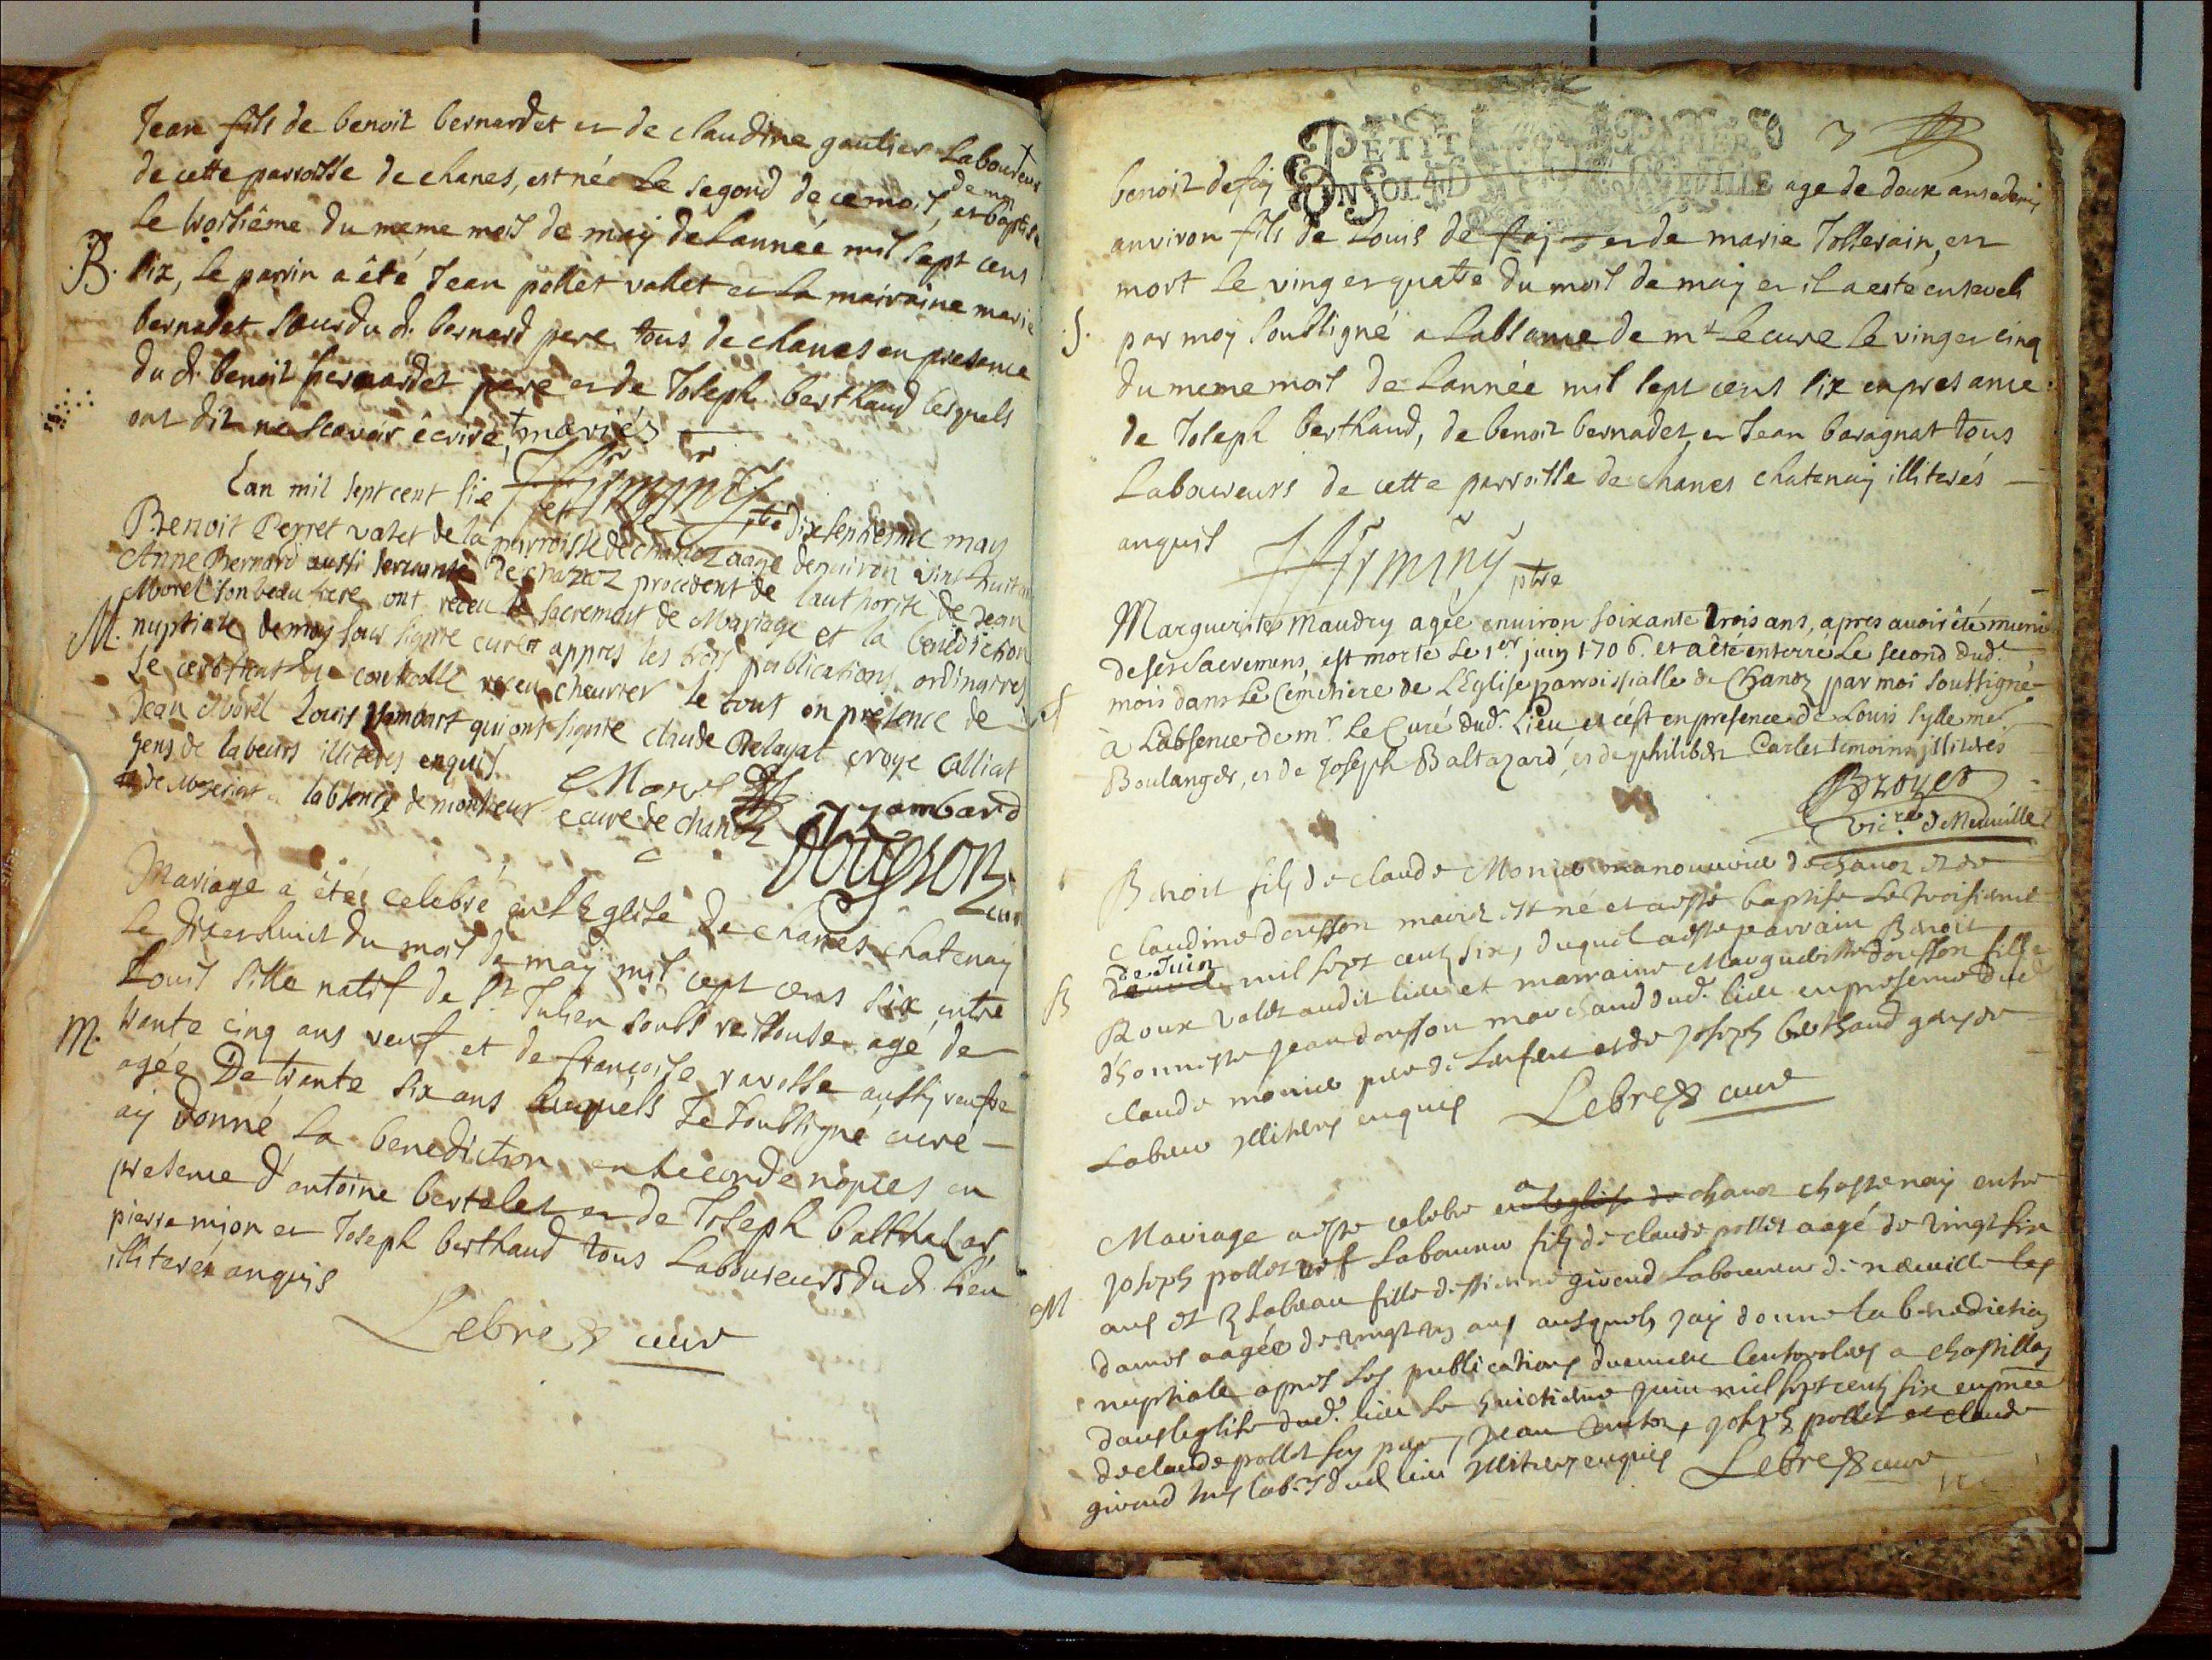 Jean fils de benoit bernardet et de claudine gautier Laboureur
de cette parroisse de chanes, est né le segond de ce mois, et baptisé
de moy
Le troisiême du meme mois de maÿ de Lannéé mil sept cens
B. six, le parrin a êté Jean pollet vallet et la mairaine marie
bernadet sœur du d. bernard pere tous de chanes en presence
du d. benoit bernardet pere et de Joseph berthaud lesquels
ont dit ne scavoir écrire, + mariés
firminy ptre
Lan mil sept cent six et le dixseptiesme may
Benoit Perret valet de la parroisse de chanoz aagé denuiron vint huit ans
Anne Bernard aussi seruante de chanoz procedent de lauthorité de Jean
Morel son beau frere ont receu le sacrement de Mariage et la benediction
M. nuptiale de moy sous signire curé appres les trois publications ordinaires
Le certificat du controolle receu cheurier le tout en présence de
Jean Morel Louis Jambart qui ont signire claude Relayat
gens de labeurs illiteres enquis.
de Mezeriat a labsence de monsieur le curé de chanoz
Morel
J Jambard
curé
Mariage a étéé celebré en lEglise de chanes chatenay
le dixet huict du mois de maÿ mil cept cens six entre
Louis sille natif de St Julien soubs ressouse agé de
M. trante cinq ans veuf et de françoise ravasse aussy veufve
agée De trante six ans auxquels Je soubsigné curé
aÿ donné La benediction en seconde nopces en
presence d'antoine bertelet et de Joseph balthasar,
pierre nijon et Joseph berthaud tous Laboureurs du d. Lieu
illiterés anquis
Lebre curé
PETIT PAPIER
UN SOL 4 D LA FEUILLE
3
benoit de faÿ age de deux ans et demy
anviron fils de Louis de faÿ et de marie Tosserain, est
mort le vingt et quatre du mois de maÿ et il a esté enseveli
S. par moÿ soubsigné a Labsance de mr Le curé le vingt et cinq
du meme mois de Lannéé mil sept cens six en presance
de Joseph berthaud, de benoit bernadet et Jean baragnat tous
Laboureurs de cette parroisse de chanes chatenaÿ illiterés
anquis
firminy ptre
Marguerite Maudry agée enuiron soixante trois ans, apres auoir été munie
de ses Sacremens, est morte Le 1er juin 1706. et a été enterré Le second dud.
S mois dans Le Cimetiere de L'Eglise parroissialle de Chanoz par moi soussigné
à L'absence de mr. Le Curé dud. Lieu et c'est en presence de Louis sylle me
Boulanger, et de Joseph Baltazard, et de philibert Carles temoins illiterés
Broyer
vicre de Neuuille
Benoit fils de claude Monier manouurier de chanoz et de
claudine dousson mariez est né et a esté baptisé Le troisieme
de Juin
B mil sept cent six, duquel a esté parrain Benoit
Roux valet audit lieu et marraine Marguerite dousson fille
d'honneste Jean dousson marchand dud. lieu en presence dud.
claude monier pere de Lenfent et de Joseph berthaud gens de
Labeur illiteres enquis Lebre curé
Mariage a esté celebré a chanoz chastenaÿ entre
Joseph pollet Laboureur fils de claude pollet aagé de vingt six
M ans et Ysabeau fille destienne giroud Laboureur de neuuille les
dames aagée de vingt ans ausquels jaÿ donné La benediction
nuptiale apres les publications a chastillon
dans leglise dud. lieu le huictieme juin mil sept cent six en pnce
de claude pollet son pere, Jean, Joseph pollet et claude
giroud lab. dud. lieu illiteres enquis Lebre curé